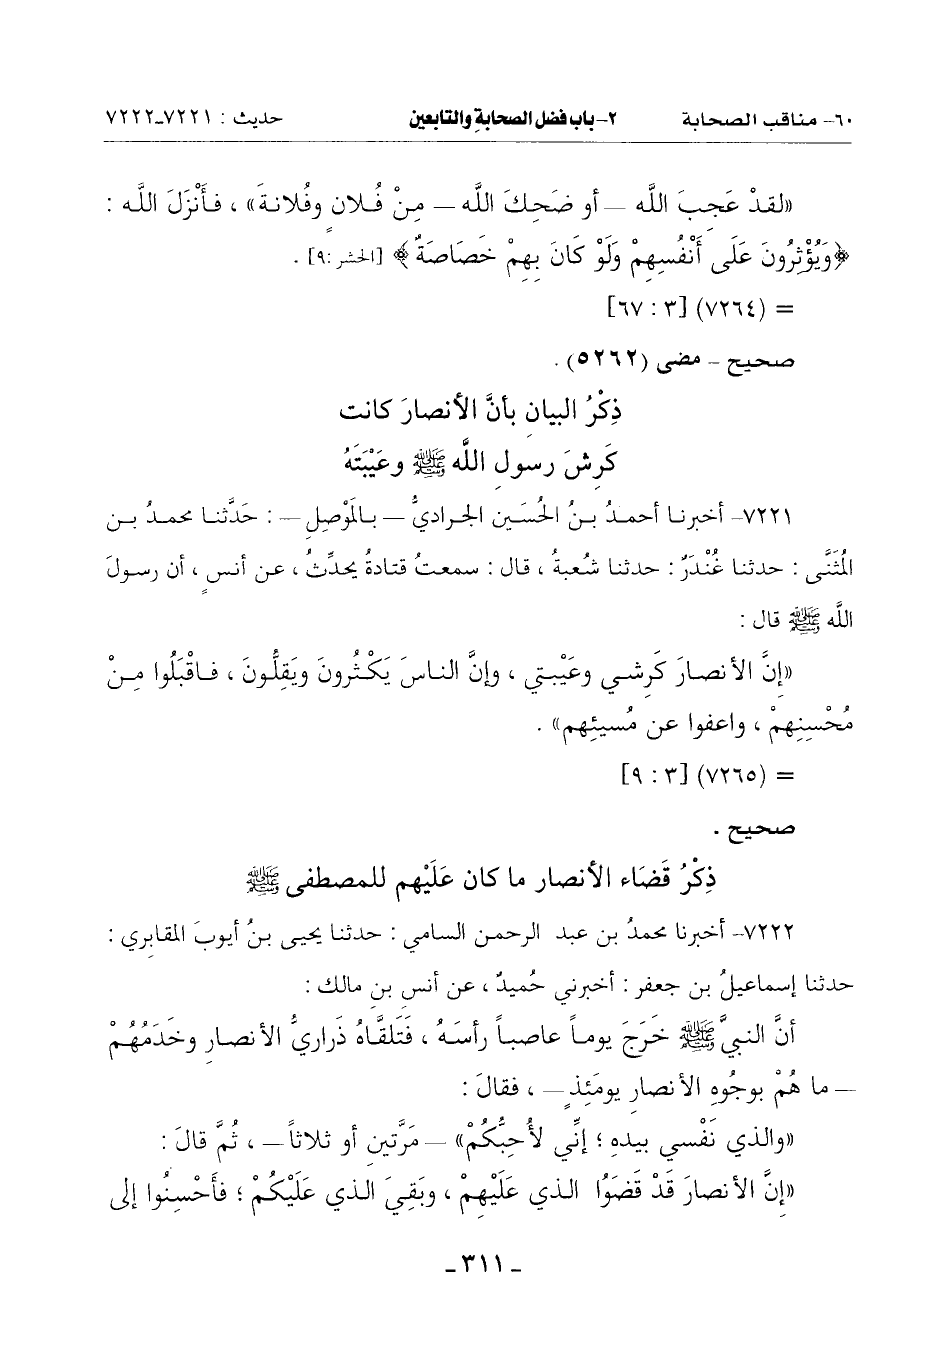 ٦٠- مناقب الصحابة ٢- باب فضل الصحابة والتابعين حديث : ٧٢٢١-٧٢٢٢
«لقدْ عَجِبَ اللَّه – أو ضَحِكَ اللَّه – مِنْ فُلانٍ وفُلانةَ» ، فأَنْزَلَ اللَّه :
﴿وَيُؤْثِرُونَ عَلَى أَنْفُسِهِمْ وَلَوْ كَانَ بِهِمْ خَصَاصَةٌ﴾ [الحشر:٩] .
= (٧٢٦٤) [٣ : ٦٧]
صحيح - مضى (٥٢٦٢) .
ذِكْرُ البيانِ بأنَّ الأنصارَ كانت
كَرِشَ رسولِ اللَّه ﷺ وعَيْبَتَهُ
٧٢٢١- أخبرنا أحمدُ بـنُ الحُسَينِ الجراديُّ – بالمَوْصِلِ – : حَدَّثنا محمدُ بـن
المُثَنَّى : حدثنا غُنْدَرٌ : حدثنا شُعبةُ ، قال : سمعتُ قتادةُ يحدِّثُ ، عن أنسٍ ، أن رسولَ
اللَّه ﷺ قال :
«إنَّ الأنصارَ كَرِشي وعَيْبتي ، وإنَّ الناسَ يَكْثُرونَ ويَقِلُّونَ ، فاقْبَلُوا مِنْ
مُحْسِنِهِمْ ، واعفوا عن مُسيئِهم» .
= (٧٢٦٥) [٣ : ٩]
صحيح .
ذِكْرُ قَضَاء الأنصار ما كان عَلَيْهم للمصطفى ﷺ
٧٢٢٢- أخبرنا محمدُ بن عبد الرحمن السامي : حدثنا يحيى بنُ أيوبَ المقابِري :
حدثنا إسماعيلُ بن جعفر : أخبرني حُميدٌ ، عن أنسِ بنِ مالك :
أنَّ النبيَّ ﷺ خَرَجَ يوماً عاصباً رأسَهُ ، فَتَلقَّاهُ ذَراريُّ الأنصارِ وخَدَمُهُمْ
– ما هُمْ بوجُوهِ الأنصارِ يومَئِذٍ – ، فقالَ :
«والذي نَفْسي بيدهِ ؛ إنِّي لأُحِبُّكُمْ» – مَرَّتينِ أو ثلاثاً – ، ثُمَّ قالَ :
«إنَّ الأنصارَ قَدْ قَضَوُا الذي عَلَيْهِمْ ، وبَقِيَ الذي عَلَيْكُمْ ؛ فأَحْسِنُوا إلى
- ٣١١ -